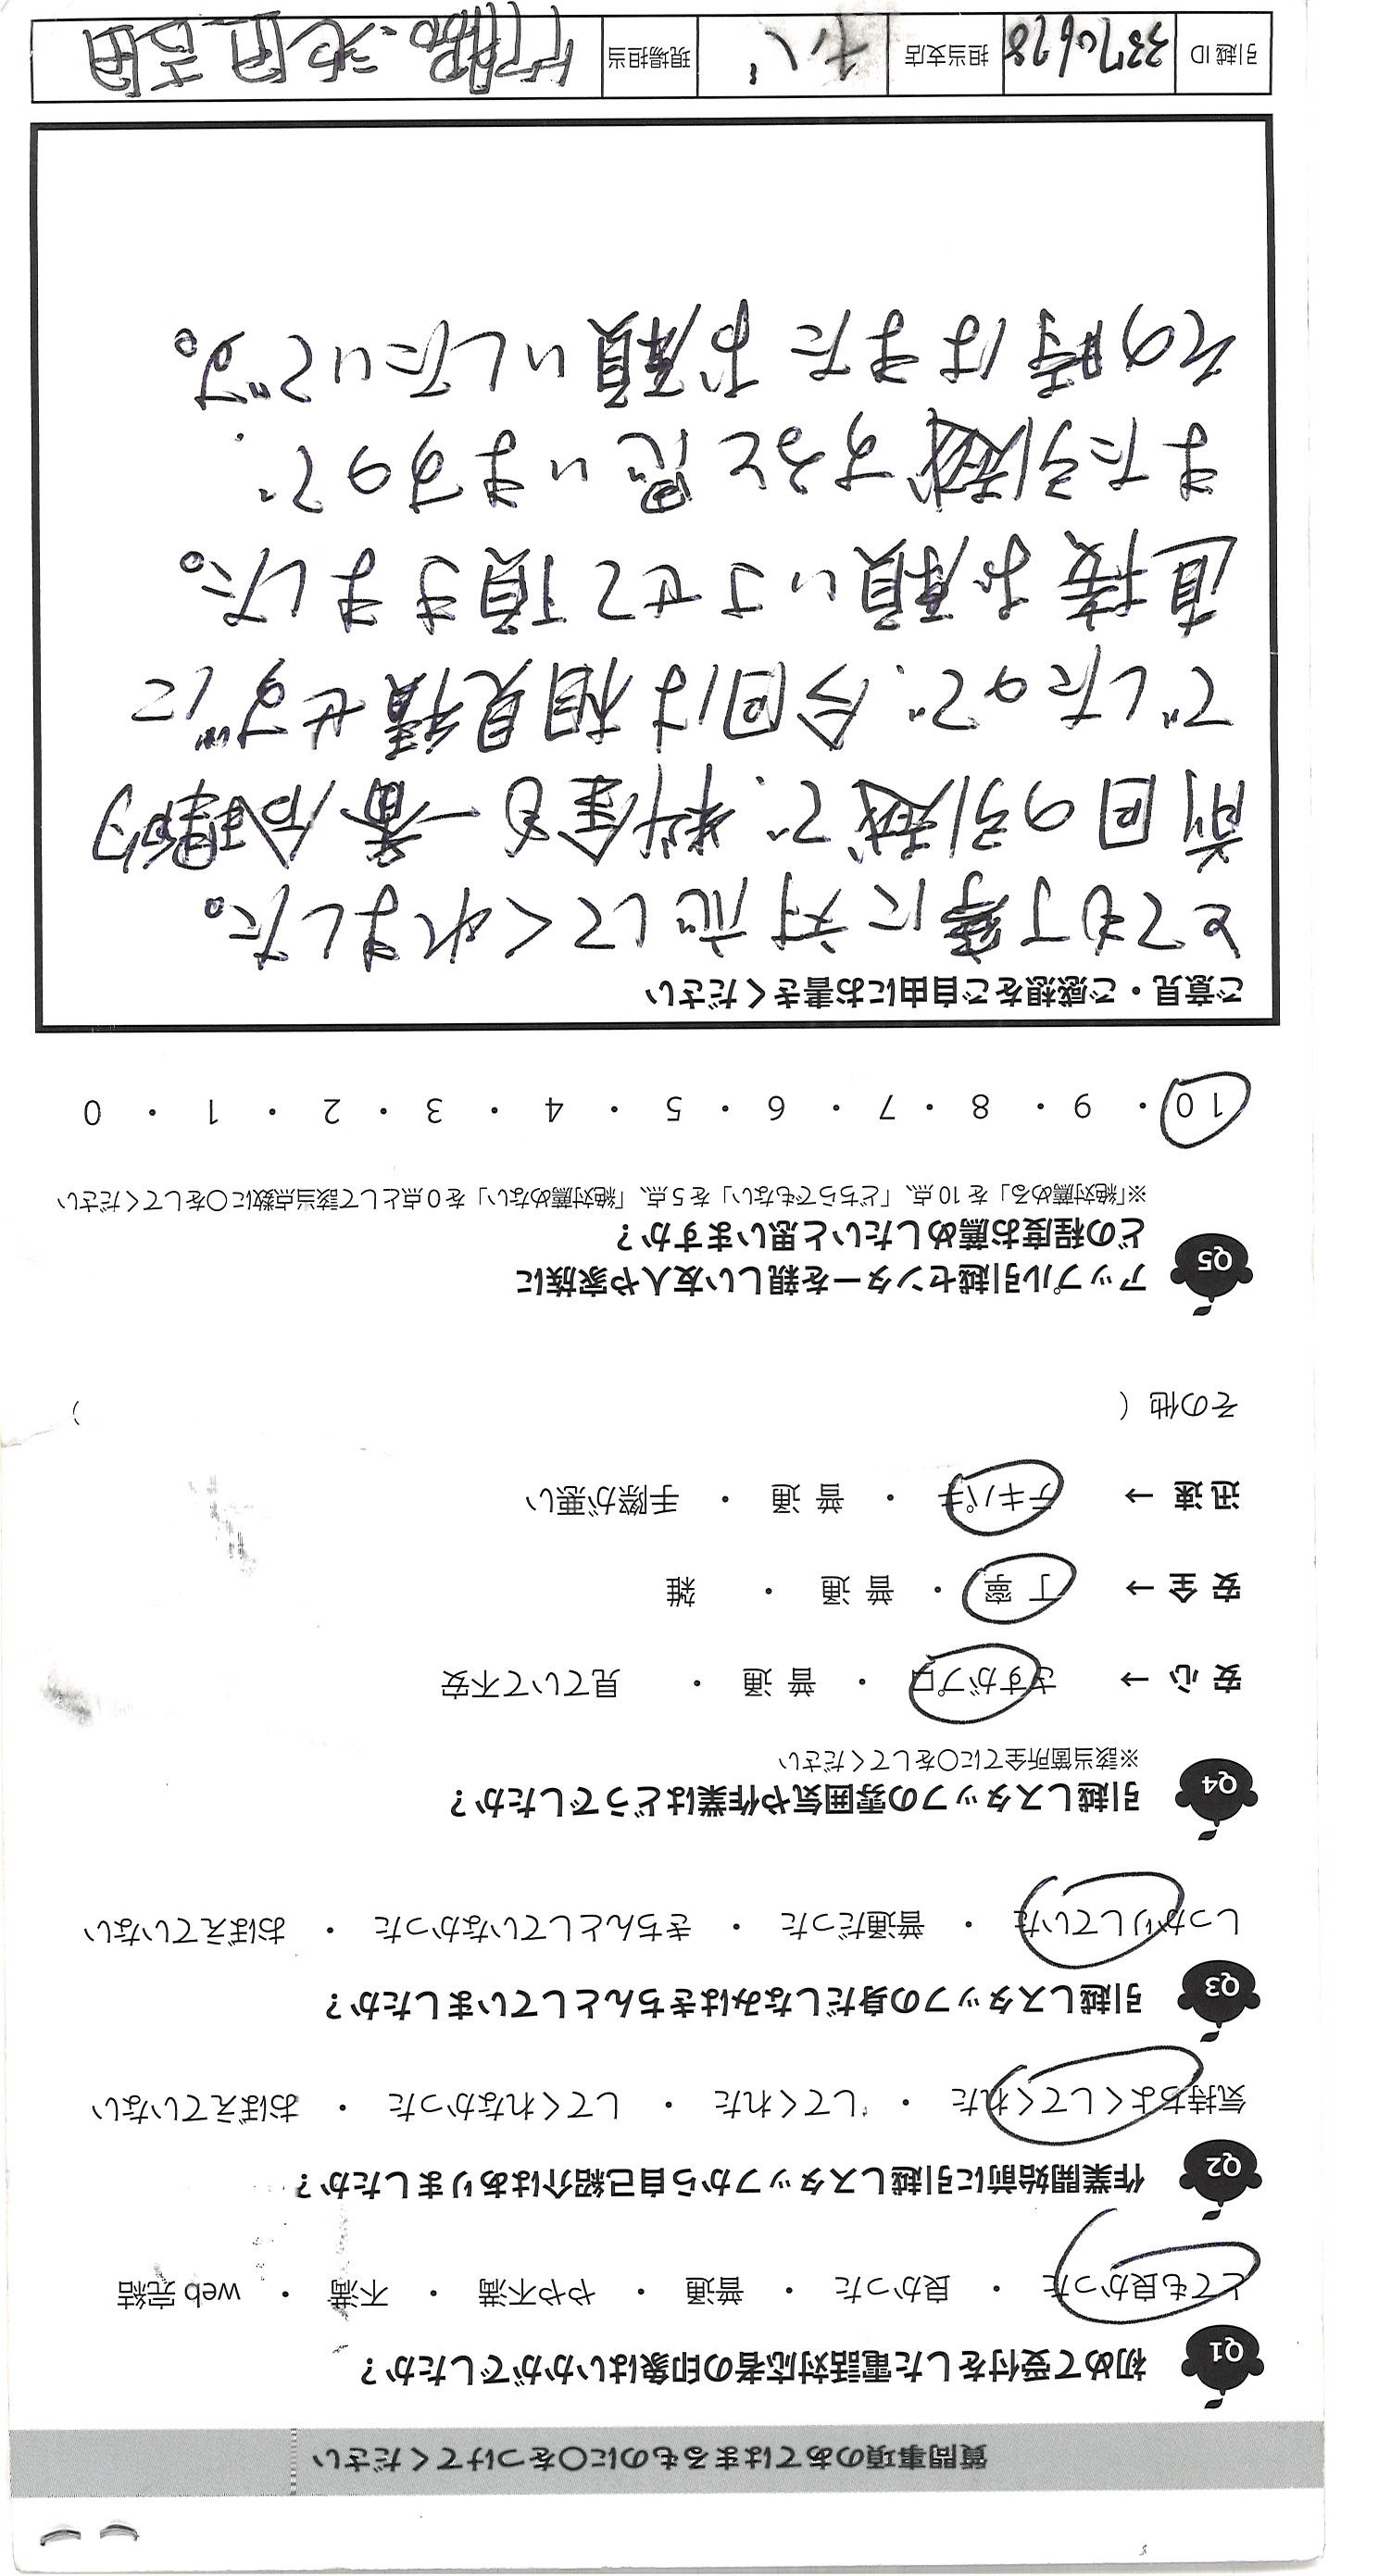 質問事項のあてはまるものに○をつけてください
Q1 初めて受付をした電話対応者の印象はいかがでしたか？
とても良かった ・ 良かった ・ 普通 ・ やや不満 ・ 不満 ・ web 完結
Q2 作業開始前に引越しスタッフから自己紹介はありましたか？
気持ちよくしてくれた ・ してくれた ・ してくれなかった ・ おぼえていない
Q3 引越しスタッフの身だしなみはきちんとしていましたか？
しっかりしていた ・ 普通だった ・ きちんとしていなかった ・ おぼえていない
Q4 引越しスタッフの雰囲気や作業はどうでしたか？
※該当箇所全てに○をしてください
安心 → さすがプロ ・ 普通 ・ 見ていて不安
安全 → 丁寧 ・ 普通 ・ 雑
迅速 → テキパキ ・ 普通 ・ 手際が悪い
その他（ ）
Q5 アップル引越センターを親しい友人や家族に
どの程度お薦めしたいと思いますか？
※「絶対薦める」を 10 点、「どちらでもない」を 5 点、「絶対薦めない」を 0 点として該当点数に○をしてください
10 ・ 9 ・ 8 ・ 7 ・ 6 ・ 5 ・ 4 ・ 3 ・ 2 ・ 1 ・ 0
ご意見・ご感想をご自由にお書きください
とても丁寧に対応してくれました。
前回の引越で、料金も一番合理的
でしたので、今回は相見積せずに
直接お願いさせて頂きました。
また引越すると思いますので、
その時はまたお願いしたいです。
引越 ID 33706678 担当支店 現場担当 池田 吉田